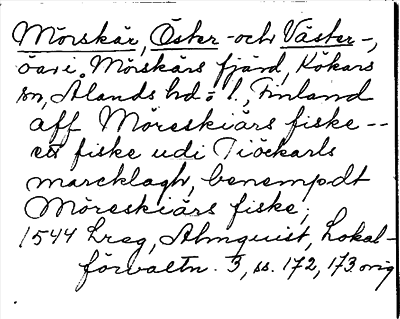 Mörskär, Öster- och Väster-,
öar i Mörskärs fjärd, Kökars
sn, Ålands hd o. l., Finland
aff Möreskiärs fiske --
ett fiske udi Tiöckarls
marcklagh, benempdt
Möreskiärs fiske,
1544 Lreg, Almquist, Lokal-
förvaltn. 3, ss. 172, 173. orig